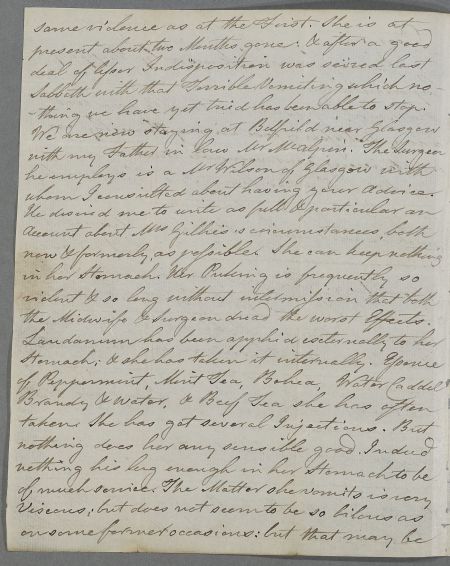 same violence as at the First. She is at
present about two Months gone: & after a good
deal of lesser Indisposition was seized last
Sabbath with that Terrible Vomiting which no-
thing we have yet tried has been able to stop.
We are now staying at Bellfield near Glasgow
with my Father in law Mr McAlpin. The Surgeon
he employs is a Mr Wilson of Glasgow with
whom I consulted about having your Advice.
He desired me to write as full & particular an
Account about Mrs Gillies's circumstances both
now & formerly, as possible. She can keep nothing
in her Stomach. Her Puking is frequently so
violent & so long without intermission that both
the Midwife & Surgeon dread the worst Effects.
Laudanum has been applied externally to her
Stomach; & she has taken it internally. Essence
of Peppermint, Mint Tea, Bohea, Water Caddel
Brandy & Water, & Beef Tea she has often
taken. She has got several Injections. But
nothing does her any sensible good. Indeed
nothing lies long enough in her Stomach to be
of much service. The Matter she vomits is very
Viscous; but does not seem to be so bilous as
on some former occasions: but that may be